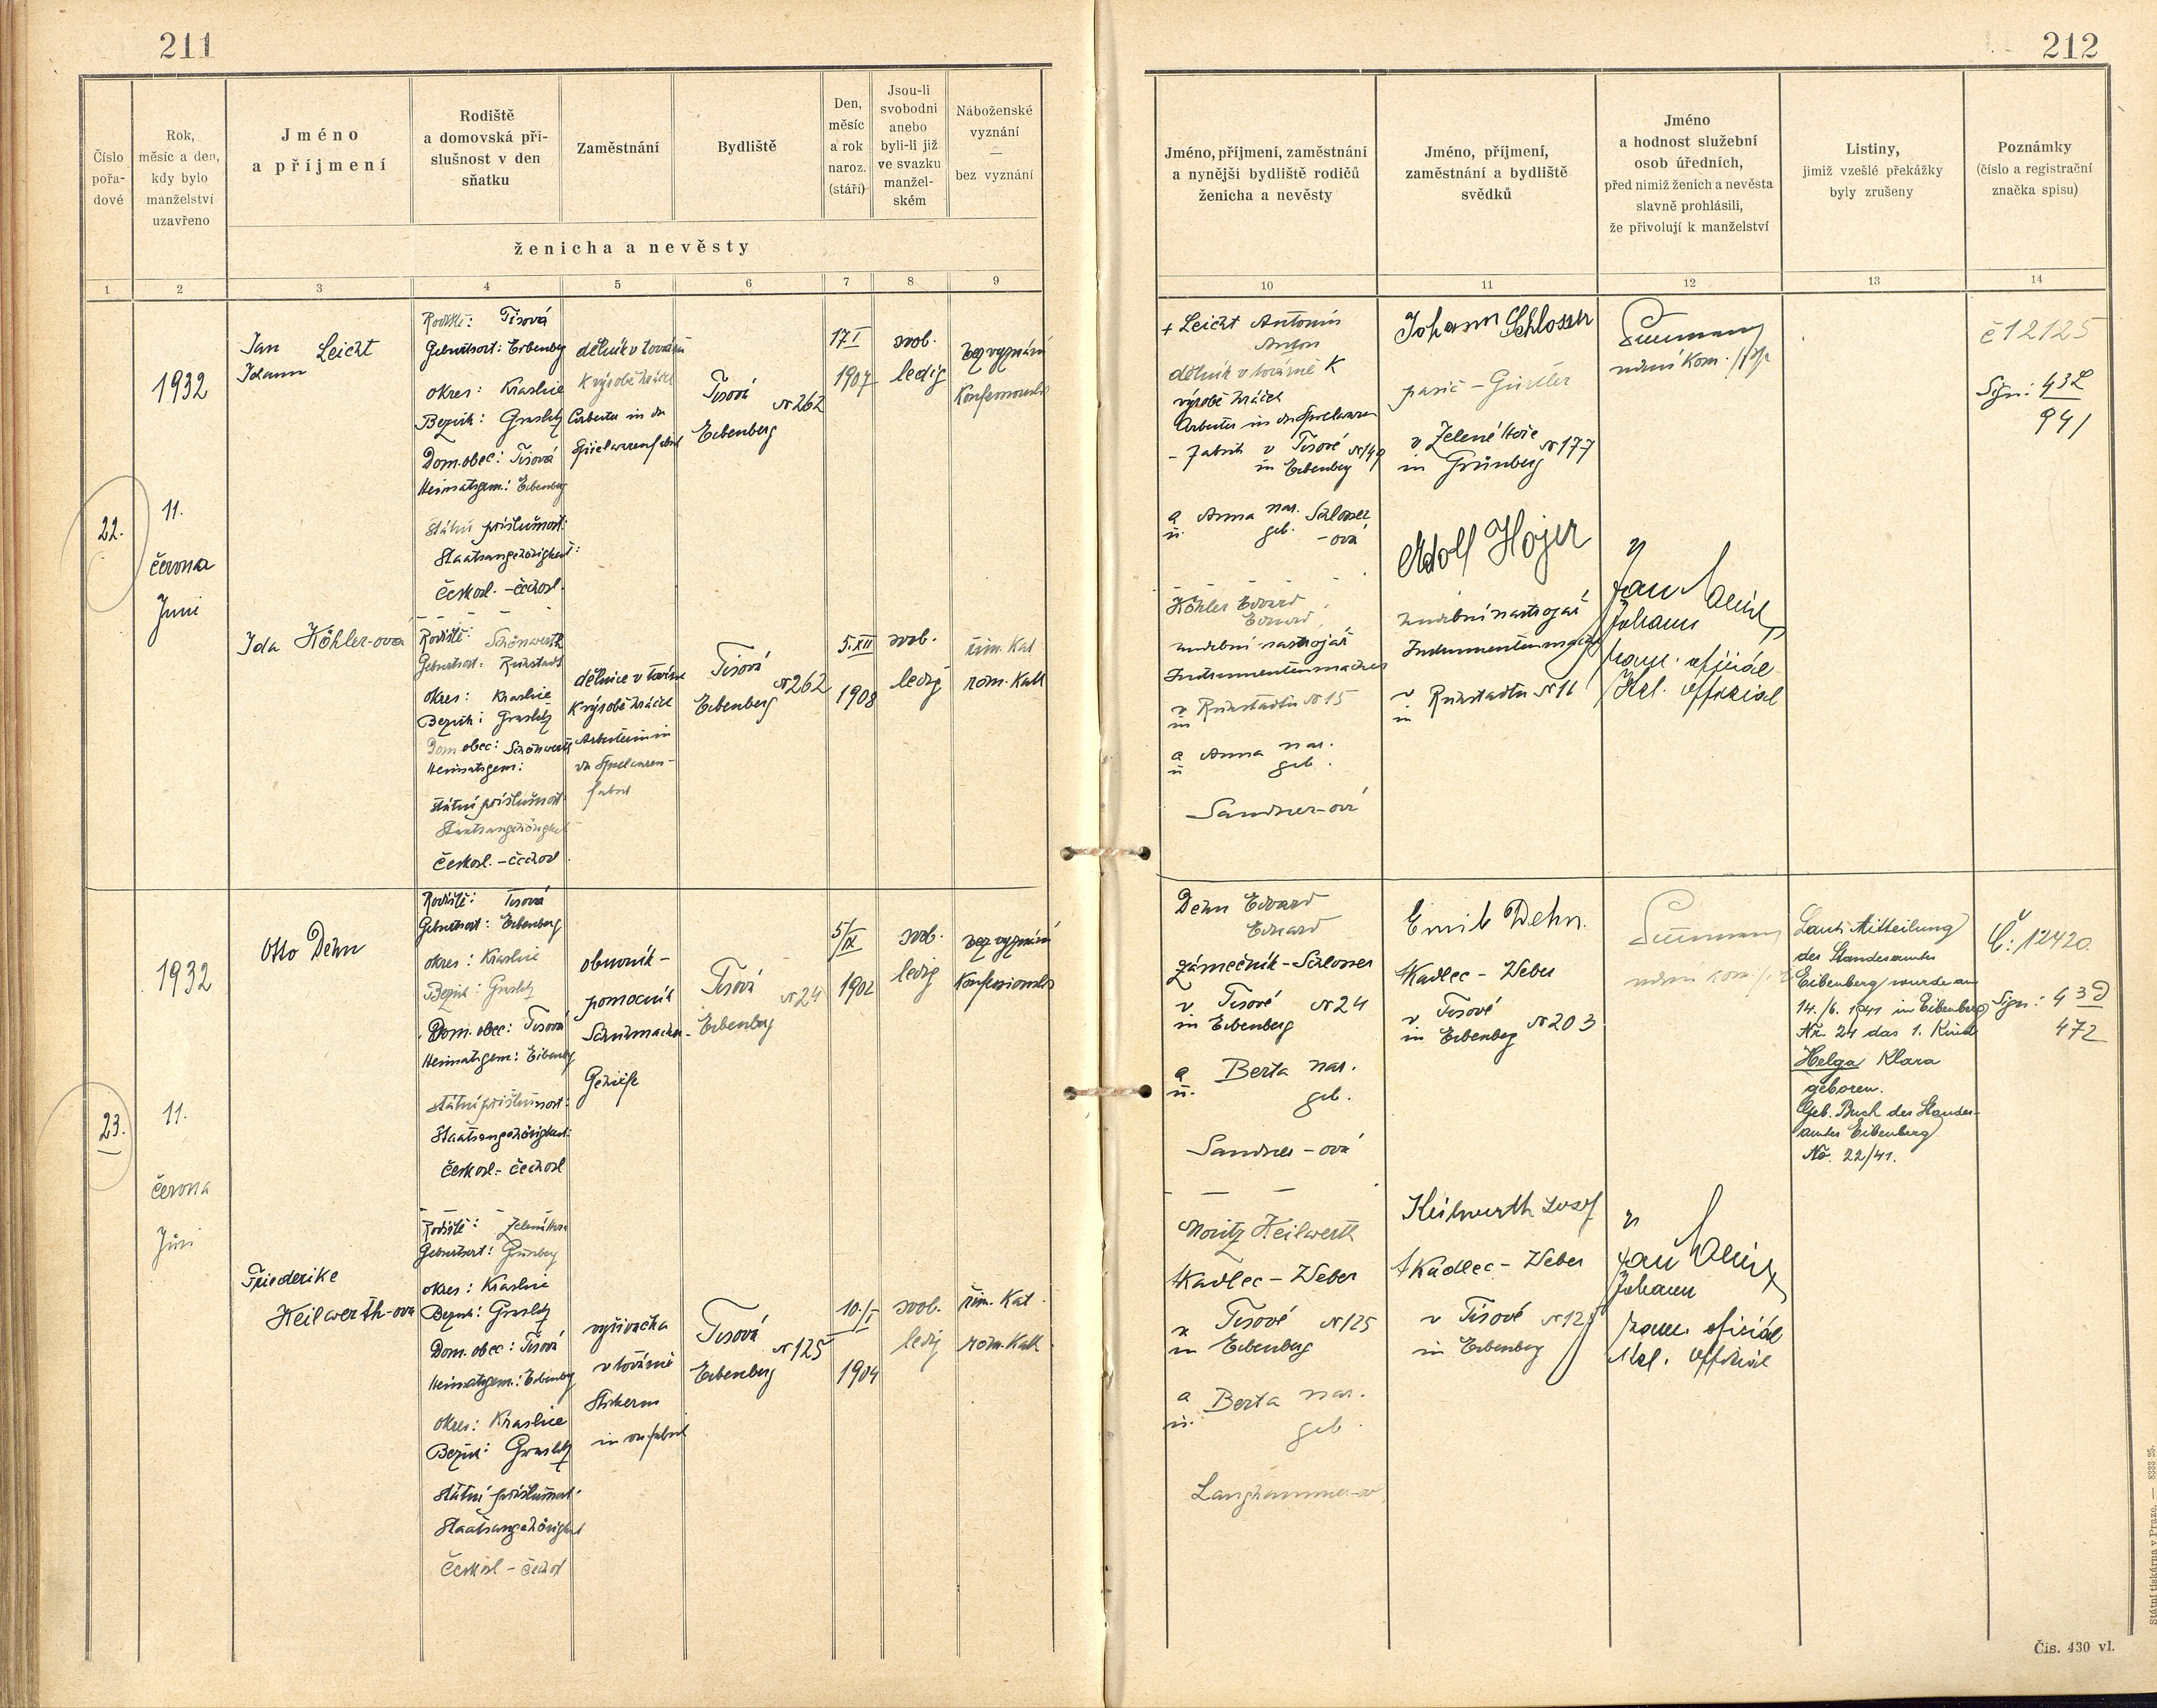 211
Číslo
pořa-
dové
Rok,
měsíc a den,
kdy bylo
manželství
uzavřeno
Jméno
a příjmení
Rodiště
a domovská pří-
slušnost v den
sňatku
Zaměstnání
Bydliště
Den,
měsíc
a rok
naroz.
(stáří)
Jsou-li
svobodni
anebo
byli-li již
ve svazku
manžel-
ském
Náboženské
vyznání
—
bez vyznání
ženicha a nevěsty
1 2 3 4 5 6 7 8 9
22.
1932
11.
června
Juni
Jan Leicht
Johann
Rodiště: Tisová
Geburtsort: Eibenberg
okres: Kraslice
Bezirk: Graslitz
Dom. obec: Tisová
Heimatsgem.: Eibenberg
Státní příslušnost:
Staatsangehörigkeit:
Českosl. - čechosl.
dělník v továrně
k výrobě hraček
Arbeiter in der
Spielwarenfabrik
Tisová
Nr 262
Eibenberg
17. I
1907
svob.
ledig
bez vyznání
Konfessionslos
Ida Köhler-ová
Rodiště: Schönwerth
Geburtsort: Ruhstadt
okres: Kraslice
Bezirk: Graslitz
Dom. obec: Schönwerth
Heimatsgem:
státní příslušnost
Staatsangehörigkeit
Českosl. - čechosl
dělnice v továrně
k výrobě hraček
Arbeiterin in
der Spielwaren-
fabrik
Tisová
Nr 262
Eibenberg
5. XII
1908
svob.
ledig
řím. kat
röm. kath
23.
1932
11.
června
Juni
Otto Dehn
Rodiště: Tisová
Geburtsort: Eibenberg
okres: Kraslice
Bezirk: Graslitz
Dom. obec: Tisová
Heimatsgem: Eibenberg
státní příslušnost:
Staatsangehörigkeit:
Českosl. - čechosl
obuvník-
pomocník
Schuhmacher-
Gehilfe
Tisová
Nr 24
Eibenberg
5/IX
1902
svob.
ledig
bez vyznání
Konfessionslos
Friederike
Keilwerth-ová
Rodiště: Zelená Hora
Geburtsort: Grünberg
okres: Kraslice
Bezirk: Graslitz
Dom. obec: Tisová
Heimatsgem.: Eibenberg
okres: Kraslice
Bezirk: Graslitz
Státní příslušnost:
Staatsangehörigkeit
Českosl - čechosl
vyšívačka
v továrně
Stickerin
in der Fabrik
Tisová
Nr 125
Eibenberg
10./I
1904
svob.
ledig
řím. kat.
röm. kath.
212
Jméno, příjmení, zaměstnání
a nynější bydliště rodičů
ženicha a nevěsty
Jméno, příjmení,
zaměstnání a bydliště
svědků
Jméno
a hodnost služební
osob úředních,
před nimiž ženich a nevěsta
slavně prohlásili,
že přivolují k manželství
Listiny,
jimiž vzešlé překážky
byly zrušeny
Poznámky
(číslo a registrační
značka spisu)
10 11 12 13 14
+ Leicht Antonín
Anton
dělník v továrně k
výrobě hraček
Arbeiter in der Spielwaren
- fabrik v Tisové Nr 149
in Eibenberg
a Anna nar. Schlosser
u. geb. - ová
Köhler Edvard
Eduard
hudební nástrojář
Instrumentenmacher
v Ruhstadtu Nr 15
in
a Anna nar.
u geb.
Sandner-ová
Johann Schlosser
pasíř - Gürtler
v Zelené Hoře
Nr 177
in Grünberg
Adolf Hojer
hudební nástrojář
Instrumentenmacher
v Ruhstadtu Nr 11
in
Jan
Johann
kanc. oficiál
Kzl. Offizial
č 12125
Sign: 43L
941
Dehn Edvard
Eduard
zámečník - Schlosser
v Tisové Nr 24
in Eibenberg
a Berta nar.
u. geb.
Sandner-ová
Moritz Keilwerth
tkadlec - Weber
v Tisové Nr 125
in Eibenberg
a Berta nar.
u. geb.
Langhammer-ová
Emil Dehn.
tkadlec - Weber
v Tisové
Nr 203
in Eibenberg
Keilwerth Josef
tkadlec - Weber
v Tisové Nr 125
in Eibenberg
Jan
Johann
kanc. oficiál
Kzl. Offizial
Laut Mitteilung
des Standesamtes
Eibenberg wurde am
14./6. 1941 in Eibenberg
Nr. 24 das 1. Kind
Helga Klara
geboren.
Geb. Buch des Standes-
amtes Eibenberg
Nr. 22/41.
Č: 12420
Sign: 43D
472
Státní tiskárna v Praze. — 8333 25.
Čís. 430 vl.